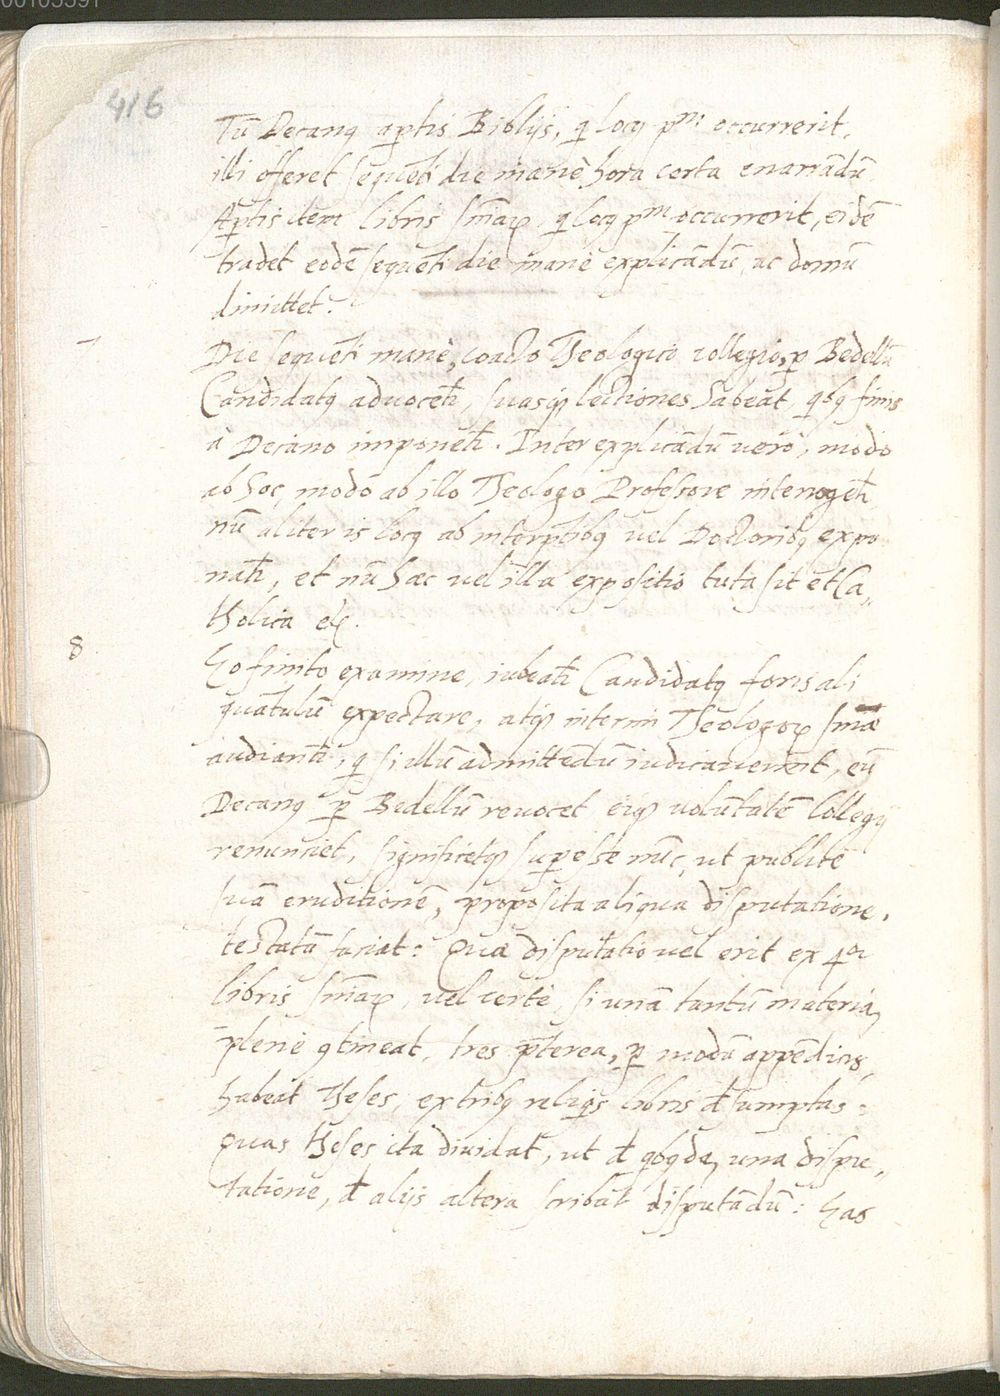 00103391
416
Tū Decanꝗ aꝑtis Biblijs, q̄ locꝗ pᵐ: occurrerit,
illi offeret sequēti die manè hora certa enarrādū
Aꝑtis item libris Sn̄iaꝝ, q̄ locꝗ pᵐ occurrerit, eidē
tradet eodē sequēti die manè explicādū, ac domū
dimittet.
7
Die sequēti manè, coacto Theologico collegio, ꝑ Bedellū
Candidatꝗ advocet̄, suasqꝫ lectiones habeat, qbꝗ finis
à Decano imponet̄. Inter explicādū verò, modo
ab hoc, modo ab illo Theologo Professore interroget̄
nū aliter is locꝗ ab interp̄tibꝗ vel Doctoribꝗ expo
nat̄, et nū hæc vel illa expositio tuta sit et Ca„
tholica etc.
8
Ho finito examine, iubeat̄ Candidatꝗ foris ali
quātulū expectare, atqꝫ interim Theologoꝝ sn̄iæ
audiant̄, q̄ si illū admittēdū iudicaverint, eū
Decanꝗ ꝑ Bedellū revocet, eiqꝫ volūtatē Collegij
renunciet, significetqꝫ suꝑesse nūc, ut publicè
suā eruditionē, proposita aliqua disputatione,
testatā faciat: Quæ disputatio vel erit ex 4ᵒʳ
libris Sn̄iaꝝ, vel certè, si unā tantū materiā
plenè ꝯtineat, tres p̄terea, ꝑ modū appēdicis,
habeat Theses, ex tribꝗ reliqs libris đsumptas:
Quas theses ita dividat, ut đ qbꝗdā, una dispu„
tatione, đ alijs altera scribat disputādū: has